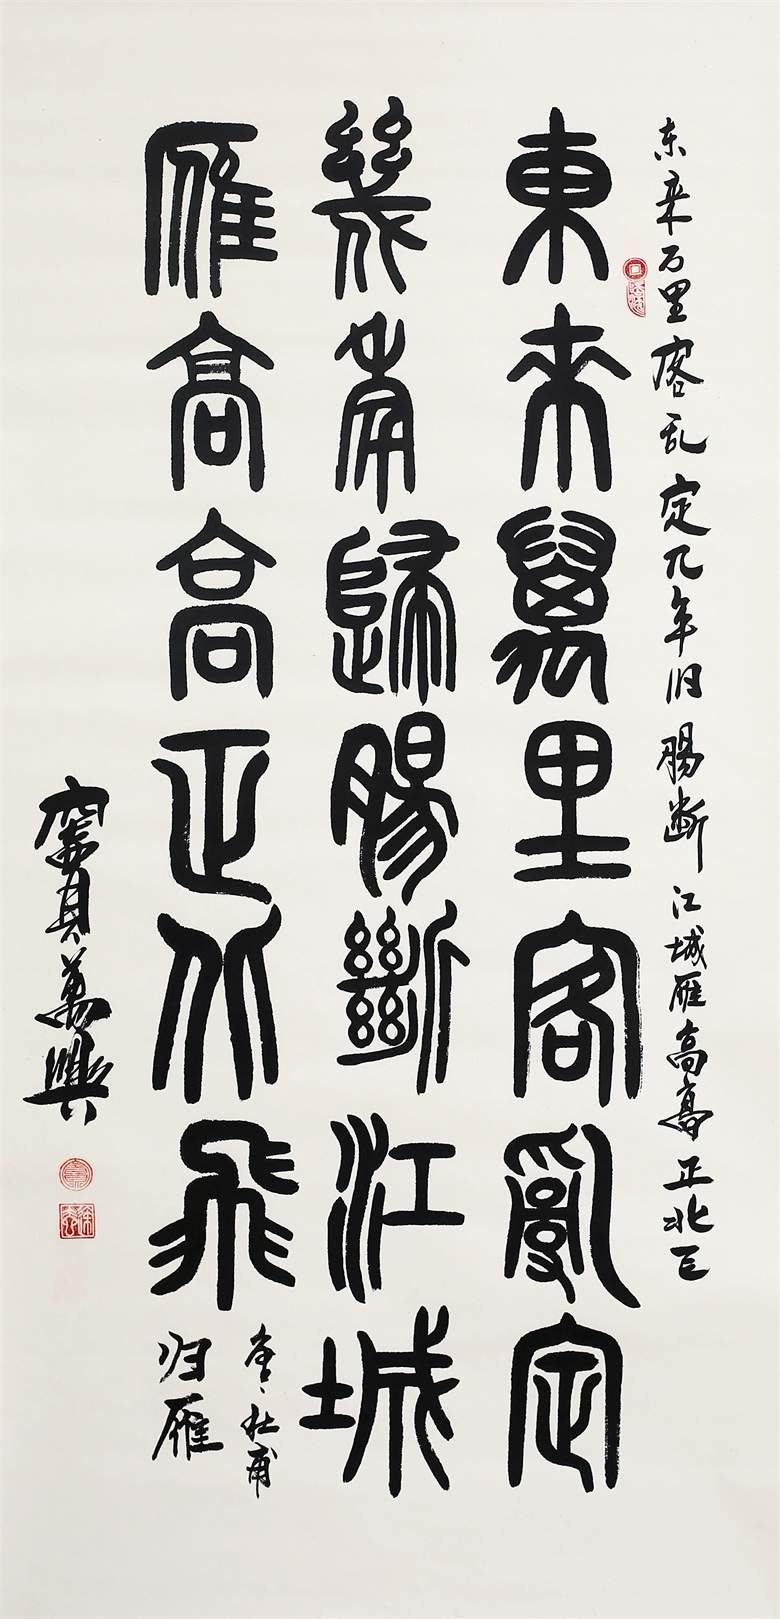 东来万里客乱定几年归肠断江城雁高高正北飞
東來萬里客亂定
幾年歸腸斷江城
雁高高正北飛
唐、杜甫
归雁
竇萬興